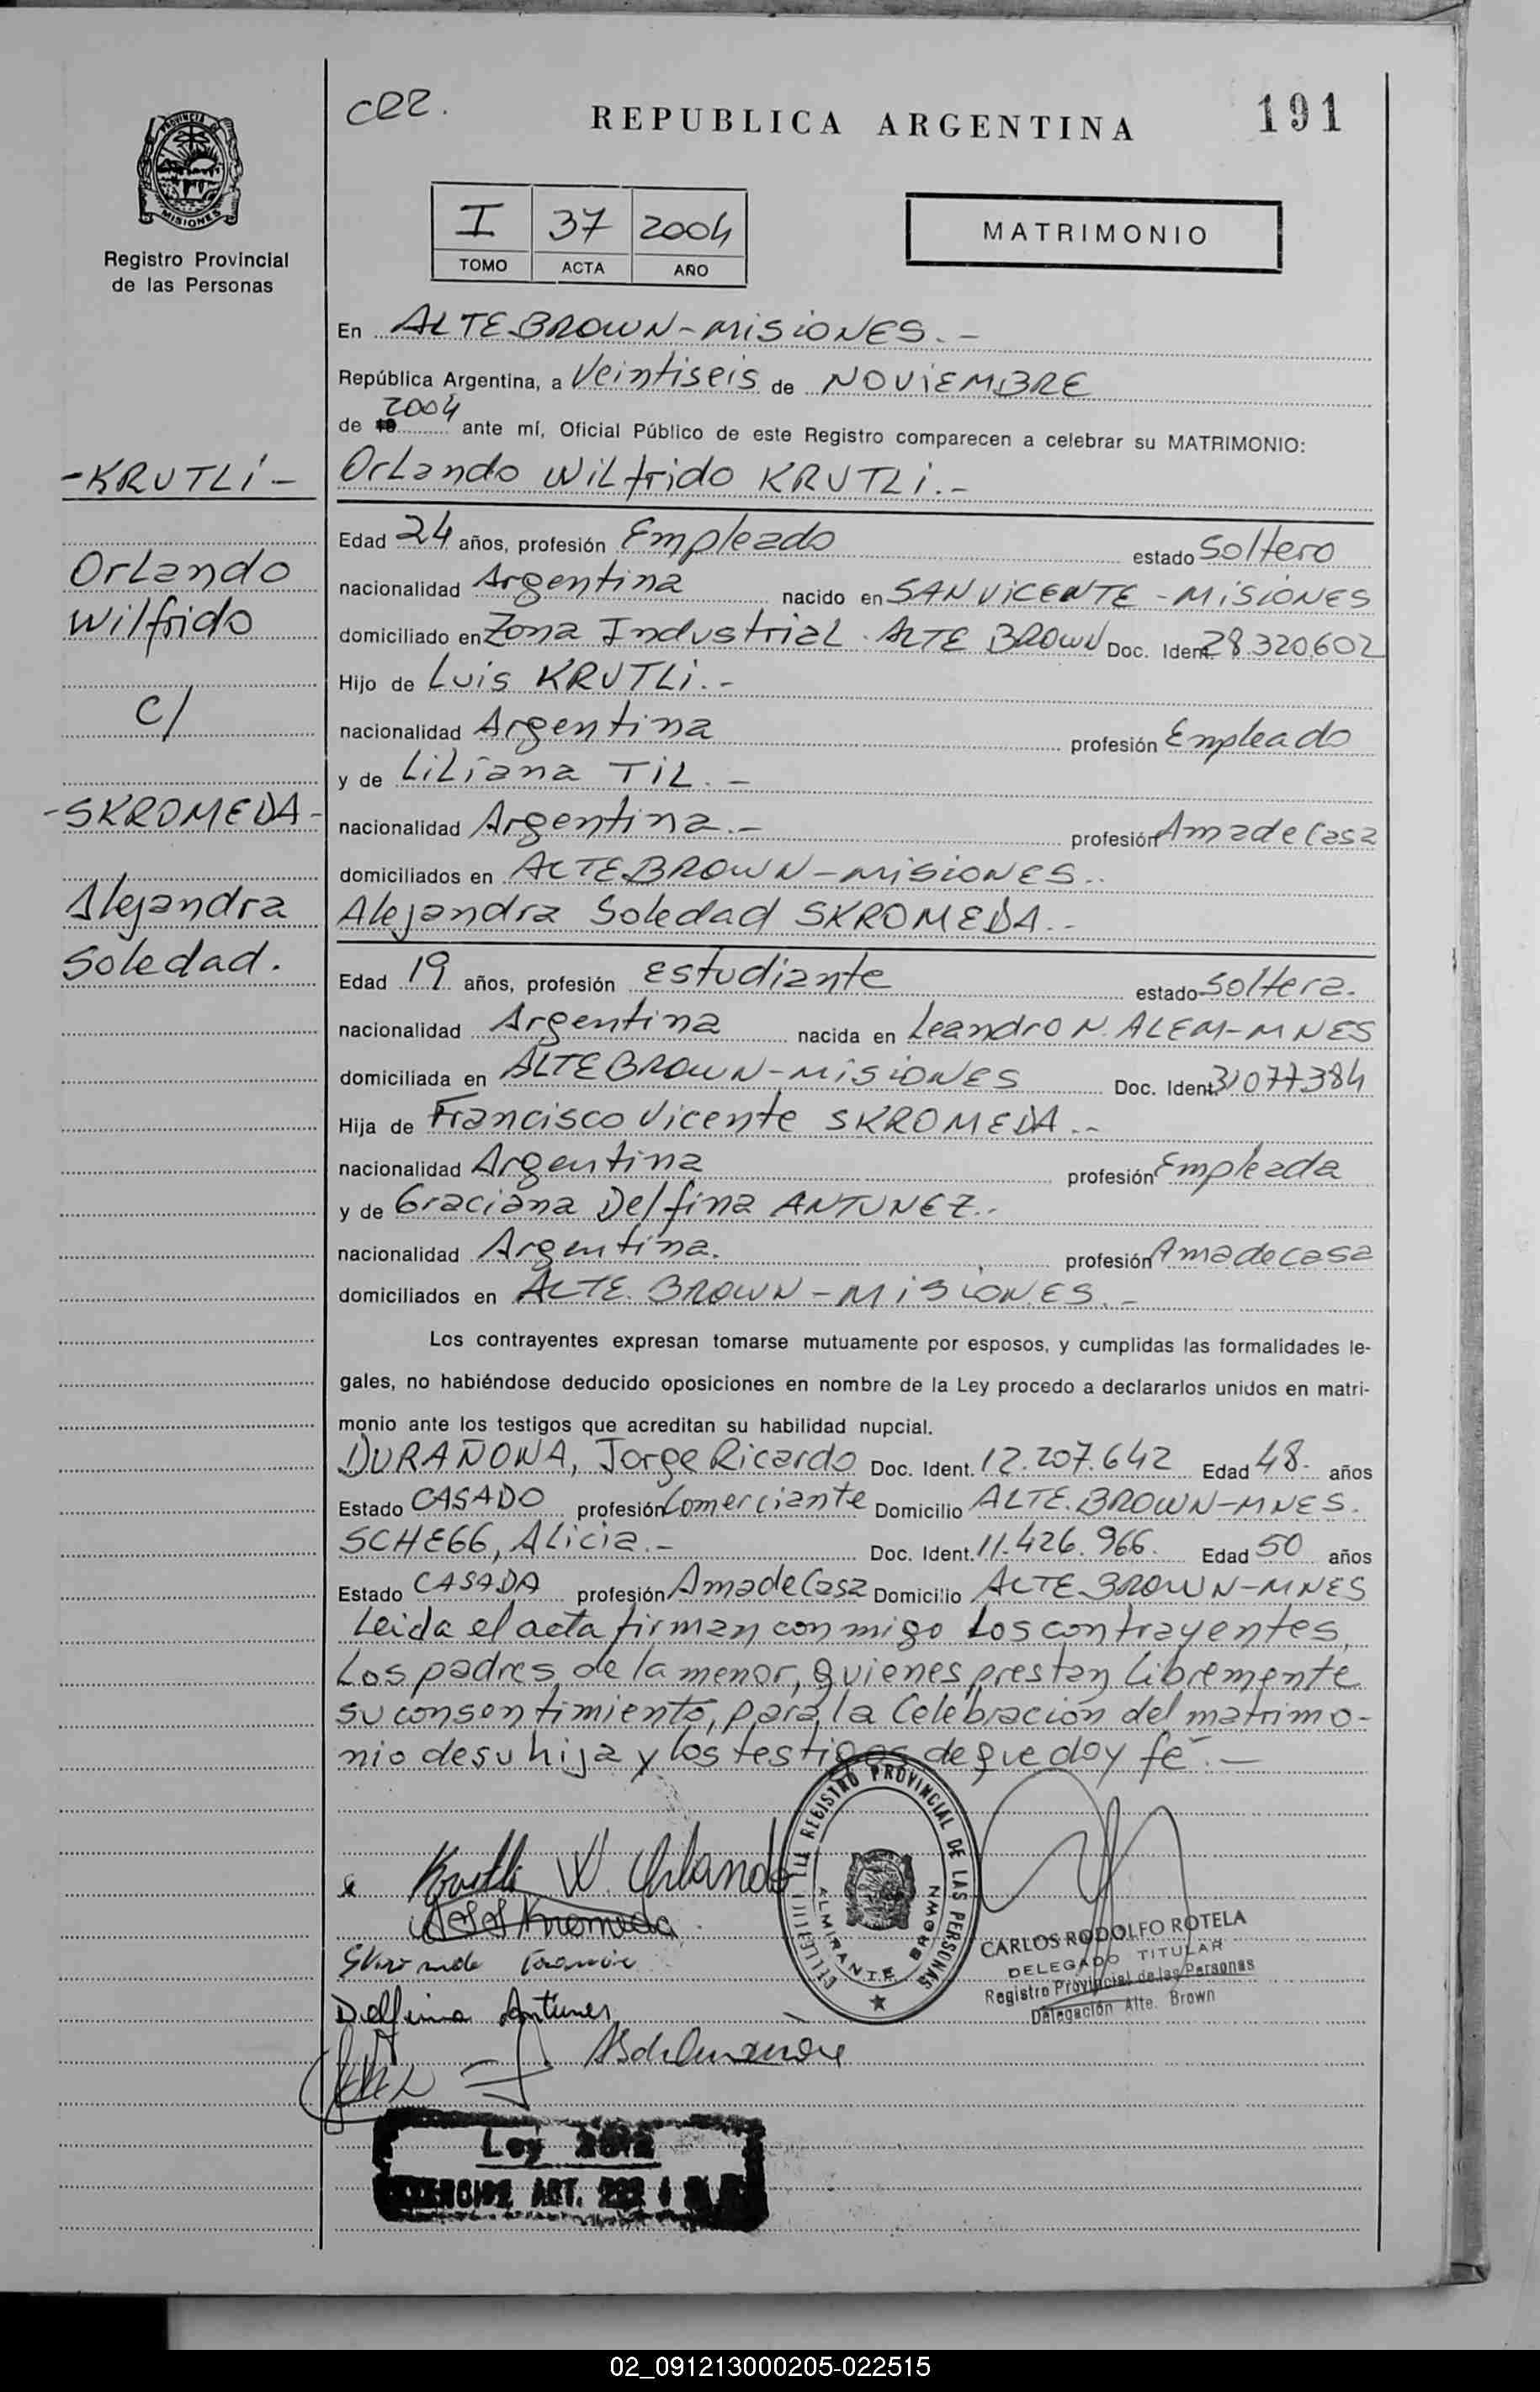 cez.
REPUBLICA ARGENTINA
191
PROVINCIA DE MISIONES
Registro Provincial
de las Personas
I 37 2004
TOMO ACTA AÑO
MATRIMONIO
En ALTE BROWN - MISIONES. -
República Argentina, a Veintiseis de NOVIEMBRE
de 2004 ante mí, Oficial Público de este Registro comparecen a celebrar su MATRIMONIO:
- KRUTLI -
Orlando Wilfrido KRUTLI. -
Edad 24 años, profesión Empleado estado Soltero
Orlando
nacionalidad Argentina nacido en SAN VICENTE - MISIONES
Wilfrido
domiciliado en Zona Industrial. ALTE BROWN Doc. Ident. 28.320.602
Hijo de Luis KRUTLI. -
C/
nacionalidad Argentina profesión Empleado
y de Liliana TIL. -
- SKROMEDA -
nacionalidad Argentina. - profesión Ama de Casa
domiciliados en ALTE BROWN - MISIONES. .
Alejandra
Alejandra Soledad SKROMEDA. -
Soledad.
Edad 19 años, profesión estudiante estado soltera.
nacionalidad Argentina nacida en Leandro N. ALEM - MNES
domiciliada en ALTE BROWN - MISIONES Doc. Ident. 31077384
Hija de Francisco Vicente SKROMEDA. -
nacionalidad Argentina profesión Empleada
y de Graciana Delfina ANTUNEZ. .
nacionalidad Argentina. profesión Ama de casa
domiciliados en ALTE. BROWN - MISIONES. -
Los contrayentes expresan tomarse mutuamente por esposos, y cumplidas las formalidades le-
gales, no habiéndose deducido oposiciones en nombre de la Ley procedo a declararlos unidos en matri-
monio ante los testigos que acreditan su habilidad nupcial.
DURAÑONA, Jorge Ricardo Doc. Ident. 12.207.642 Edad 48. años
Estado CASADO profesión Comerciante Domicilio ALTE. BROWN - MNES.
SCHEGG, Alicia. - Doc. Ident. 11.426.966. Edad 50 años
Estado CASADA profesión Ama de Casa Domicilio ALTE BROWN - MNES
Leida el acta firman conmigo Los contrayentes,
Los padres de la menor, quienes prestan Libremente
su consentimiento, para la Celebración del matrimo-
nio de su hija y los testigos de que doy fé. -
Krutli W. Orlando
REGISTRO PROVINCIAL DE LAS PERSONAS
ALMIRANTE BROWN
CARLOS RODOLFO ROTELA
DELEGADO TITULAR
Registro Provincial de las Personas
Delegación Alte. Brown
Delfina Antunes
Ley 2872
ART. 292
02_091213000205-022515